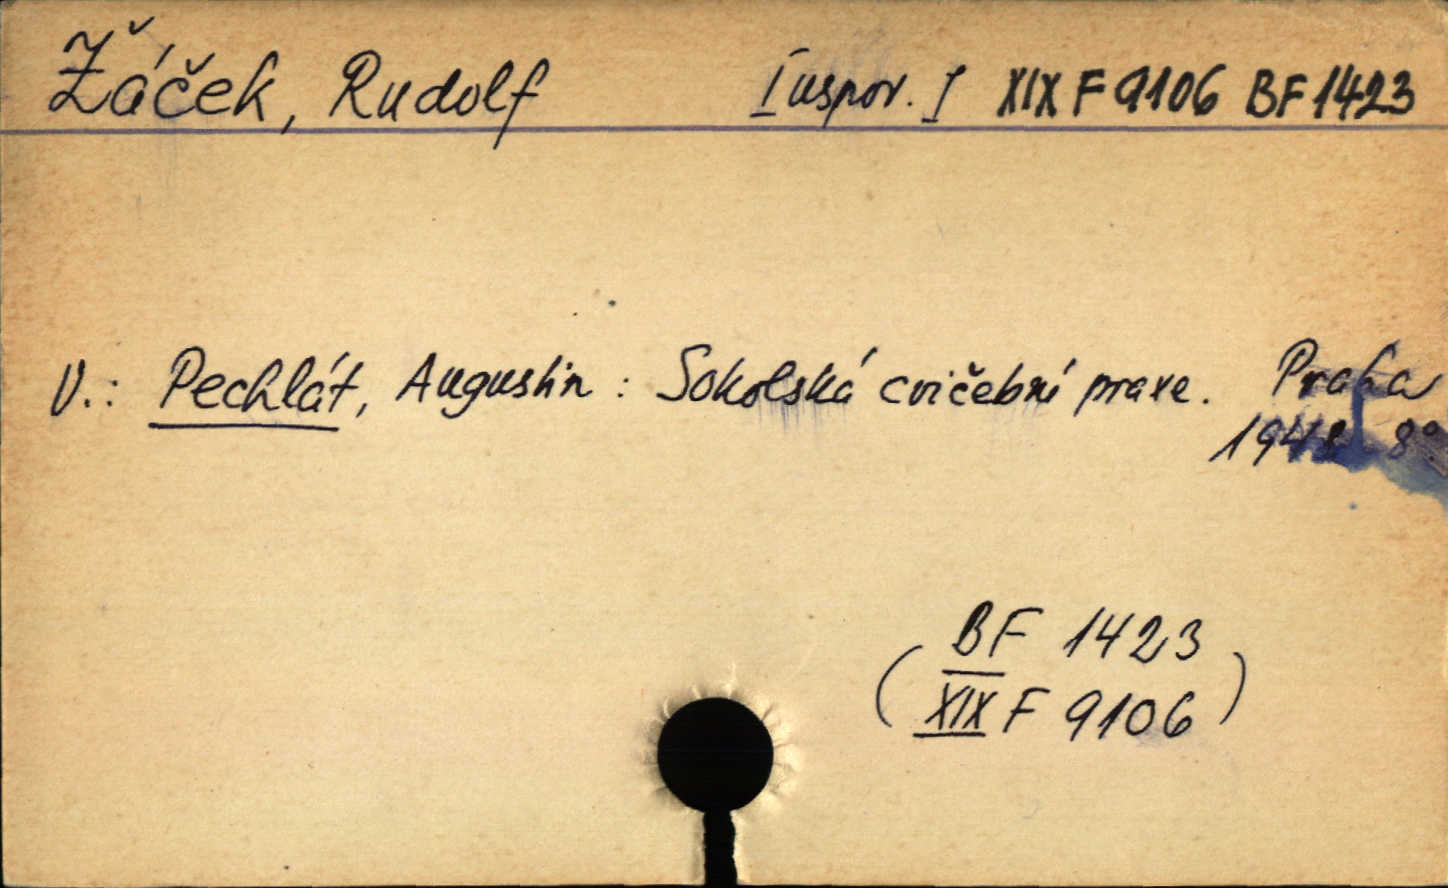 Žáček, Rudolf [uspor.] XIX F 9106 BF 1423
V.: Pechlát, Augustin : Sokolská cvičební praxe. Praha
1948 8°.
( BF 1423
XIX F 9106 )